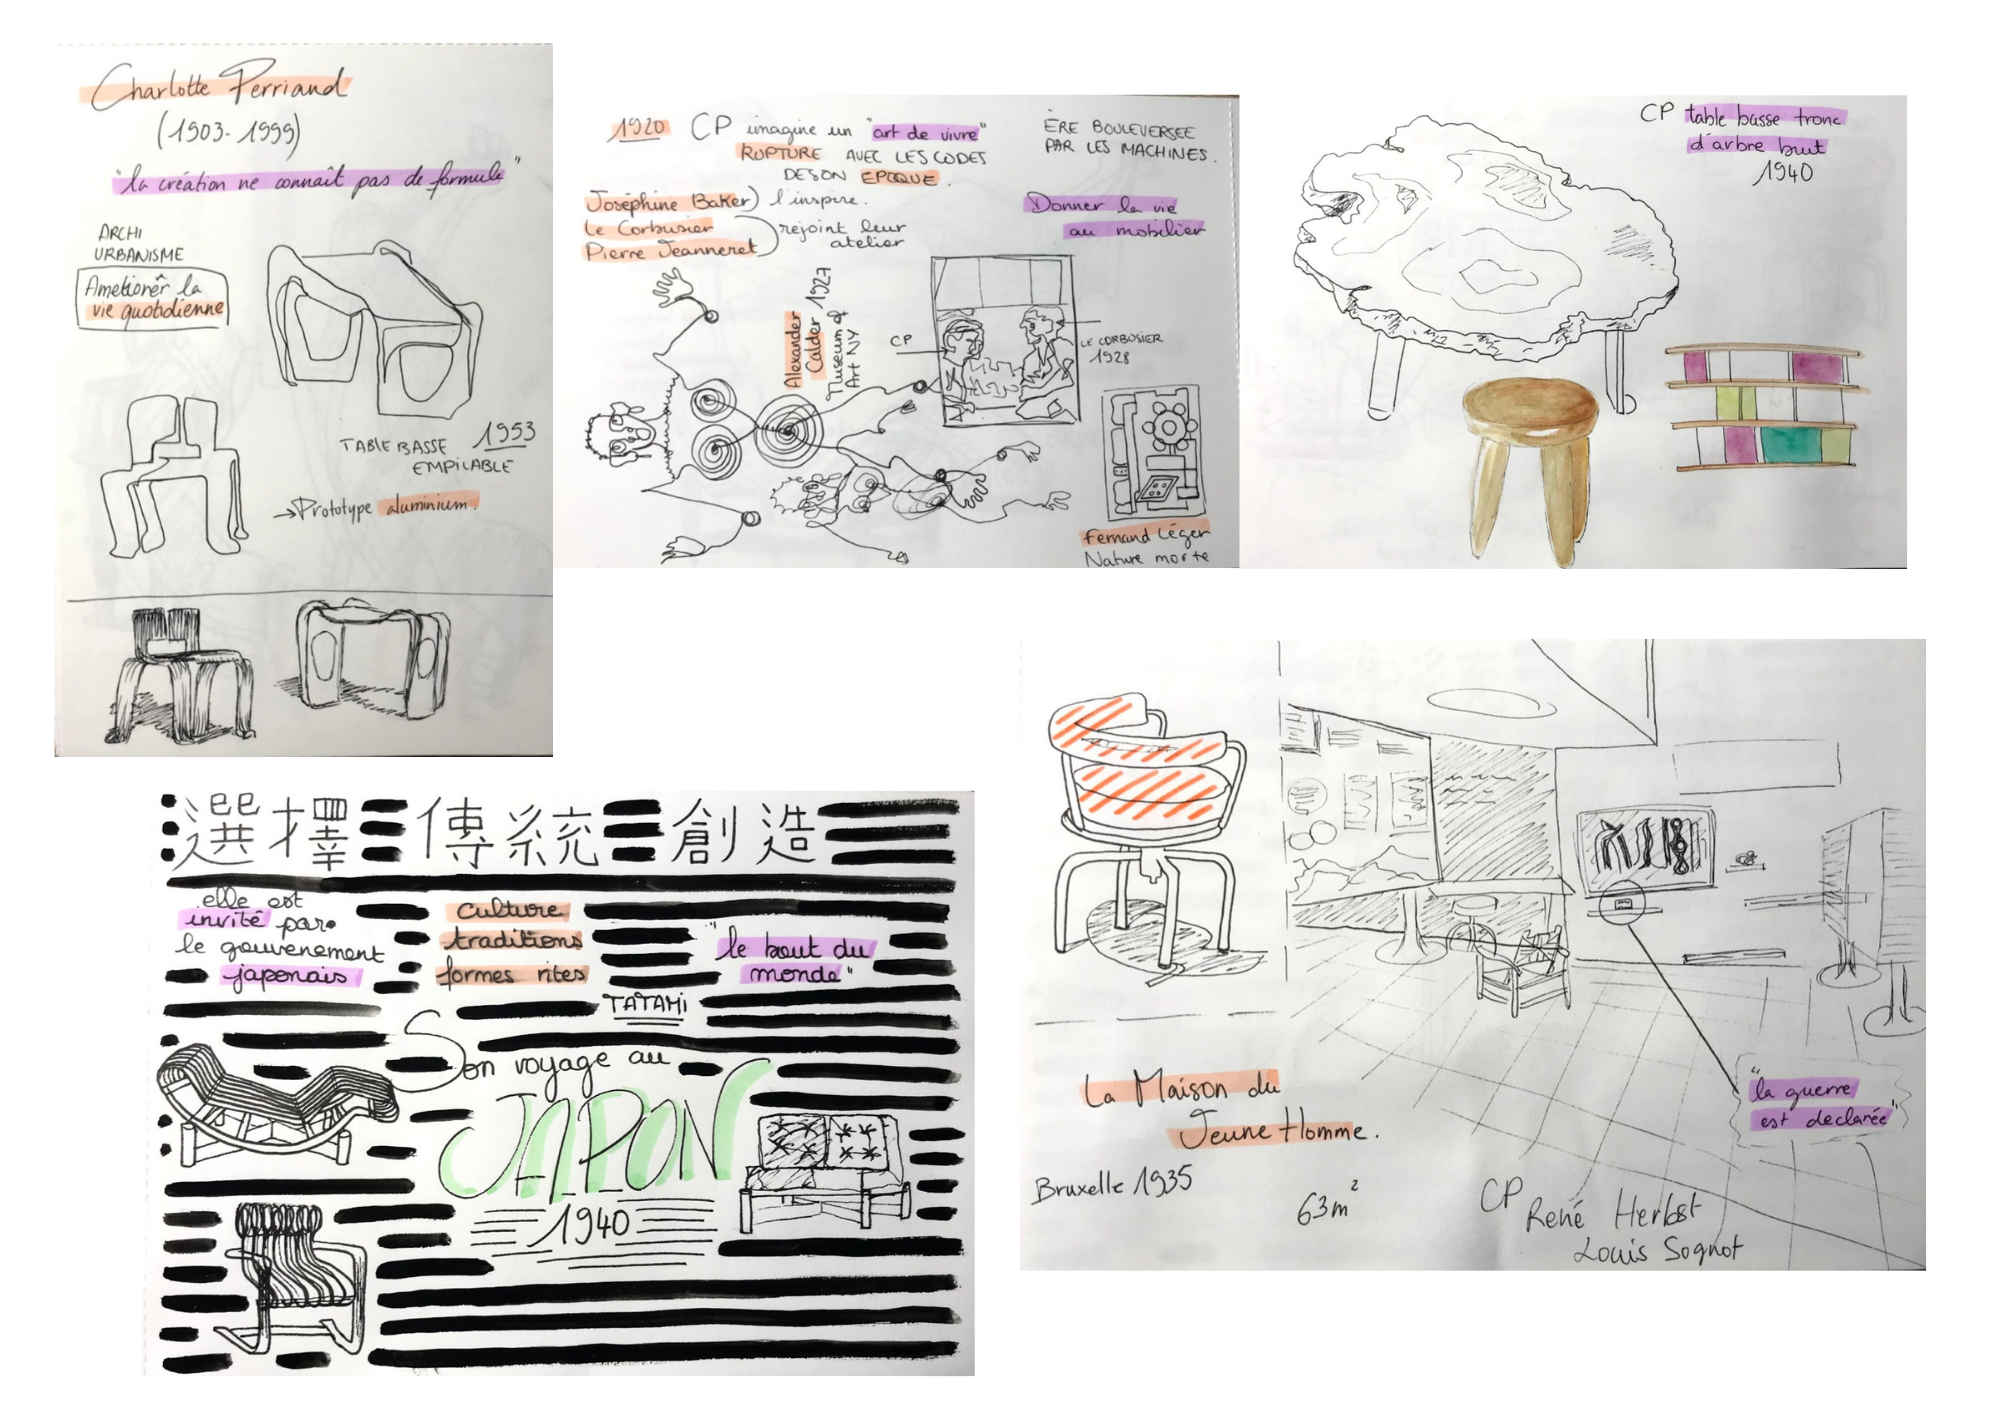 Charlotte Perriand
(1903-1999)
"la création ne connaît pas de formule"
ARCHI
URBANISME
Ameliorer la
vie quotidienne
TABLE BASSE 1953
EMPILABLE
→ Prototype aluminium.
1920 CP imagine un "art de vivre"
RUPTURE AVEC LES CODES
DE SON EPOQUE.
ÈRE BOULEVERSEE
PAR LES MACHINES.
Joséphine Baker) l'inspire.
Le Corbusier
Pierre Jeanneret) rejoint leur
atelier
Donner la vie
au mobilier
Alexander
Calder 1927
Museum of
Art NY
CP
LE CORBUSIER
1928
Fernand Léger
Nature morte
CP table basse tronc
d'arbre brut
1940
選擇 傳統 創造
elle est
invité par
le gouvenement
japonais
culture
traditions
formes rites
"le bout du
monde"
TATAMI
Son voyage au
JAPON
1940
La Maison du
Jeune Homme.
Bruxelle 1935
63m²
CP
René Herbst
Louis Sognot
"la guerre
est declarée"